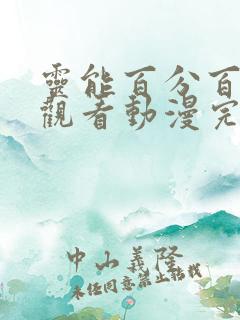 靈能百分百
觀看動漫完
中山義隆
未经同意禁止转载